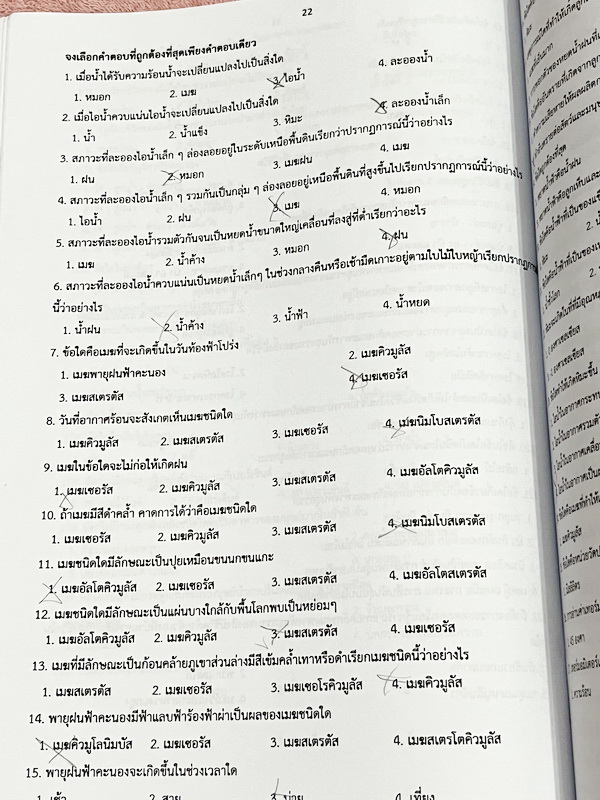 22
จงเลือกคำตอบที่ถูกต้องที่สุดเพียงคำตอบเดียว
1. เมื่อน้ำได้รับความร้อนน้ำจะเปลี่ยนแปลงไปเป็นสิ่งใด
1. หมอก 2. เมฆ 3. ไอน้ำ 4. ละอองน้ำ
2. เมื่อไอน้ำควบแน่นไอน้ำจะเปลี่ยนแปลงไปเป็นสิ่งใด
1. น้ำ 2. น้ำแข็ง 3. หิมะ 4. ละอองน้ำเล็ก
3. สภาวะที่ละอองไอน้ำเล็ก ๆ ล่องลอยอยู่ในระดับเหนือพื้นดินเรียกว่าปรากฏการณ์นี้ว่าอย่างไร
1. ฝน 2. หมอก 3. เมฆฝน 4. เมฆ
4. สภาวะที่ละอองไอน้ำเล็ก ๆ รวมกันเป็นกลุ่ม ๆ ล่องลอยอยู่เหนือพื้นดินที่สูงขึ้นไปเรียกปรากฏการณ์นี้ว่าอย่างไร
1. ไอน้ำ 2. ฝน 3. เมฆ 4. หมอก
5. สภาวะที่ละอองไอน้ำรวมตัวกันจนเป็นหยดน้ำขนาดใหญ่เคลื่อนที่ลงสู่ที่ต่ำเรียกว่าอะไร
1. เมฆ 2. น้ำค้าง 3. หมอก 4. ฝน
6. สภาวะที่ละอองไอน้ำควบแน่นเป็นหยดน้ำเล็กๆ ในช่วงกลางคืนหรือเช้ามืดเกาะอยู่ตามใบไม้ใบหญ้าเรียกปรากฏการณ์
นี้ว่าอย่างไร
1. น้ำฝน 2. น้ำค้าง 3. น้ำฟ้า 4. น้ำหยด
7. ข้อใดคือเมฆที่จะเกิดขึ้นในวันท้องฟ้าโปร่ง
1. เมฆพายุฝนฟ้าคะนอง 2. เมฆคิวมูลัส
3. เมฆสเตรตัส 4. เมฆเซอรัส
8. วันที่อากาศร้อนจะสังเกตเห็นเมฆชนิดใด
1. เมฆคิวมูลัส 2. เมฆสเตรตัส 3. เมฆเซอรัส 4. เมฆนิมโบสเตรตัส
9. เมฆในข้อใดจะไม่ก่อให้เกิดฝน
1. เมฆเซอรัส 2. เมฆคิวมูลัส 3. เมฆสเตรตัส 4. เมฆอัลโตคิวมูลัส
10. ถ้าเมฆมีสีดำคล้ำ คาดการได้ว่าคือเมฆชนิดใด
1. เมฆเซอรัส 2. เมฆคิวมูลัส 3. เมฆสเตรตัส 4. เมฆนิมโบสเตรตัส
11. เมฆชนิดใดมีลักษณะเป็นปุยเหมือนขนนกขนแกะ
1. เมฆอัลโตคิวมูลัส 2. เมฆเซอรัส 3. เมฆสเตรตัส 4. เมฆอัลโตสเตรตัส
12. เมฆชนิดใดมีลักษณะเป็นแผ่นบางใกล้กับพื้นโลกพบเป็นหย่อมๆ
1. เมฆอัลโตคิวมูลัส 2. เมฆคิวมูลัส 3. เมฆสเตรตัส 4. เมฆเซอรัส
13. เมฆที่มีลักษณะเป็นก้อนคล้ายภูเขาส่วนล่างมีสีเข้มคล้ำเทาหรือดำเรียกเมฆชนิดนี้ว่าอย่างไร
1. เมฆสเตรตัส 2. เมฆเซอรัส 3. เมฆเซอโรคิวมูลัส 4. เมฆคิวมูลัส
14. พายุฝนฟ้าคะนองมีฟ้าแลบฟ้าร้องฟ้าผ่าเป็นผลของเมฆชนิดใด
1. เมฆคิวมูโลนิมบัส 2. เมฆเซอรัส 3. เมฆสเตรตัส 4. เมฆสเตรโตคิวมูลัส
15. พายุฝนฟ้าคะนองจะเกิดขึ้นในช่วงเวลาใด
1. เช้า 2. สาย 3. บ่าย 4. เที่ยง